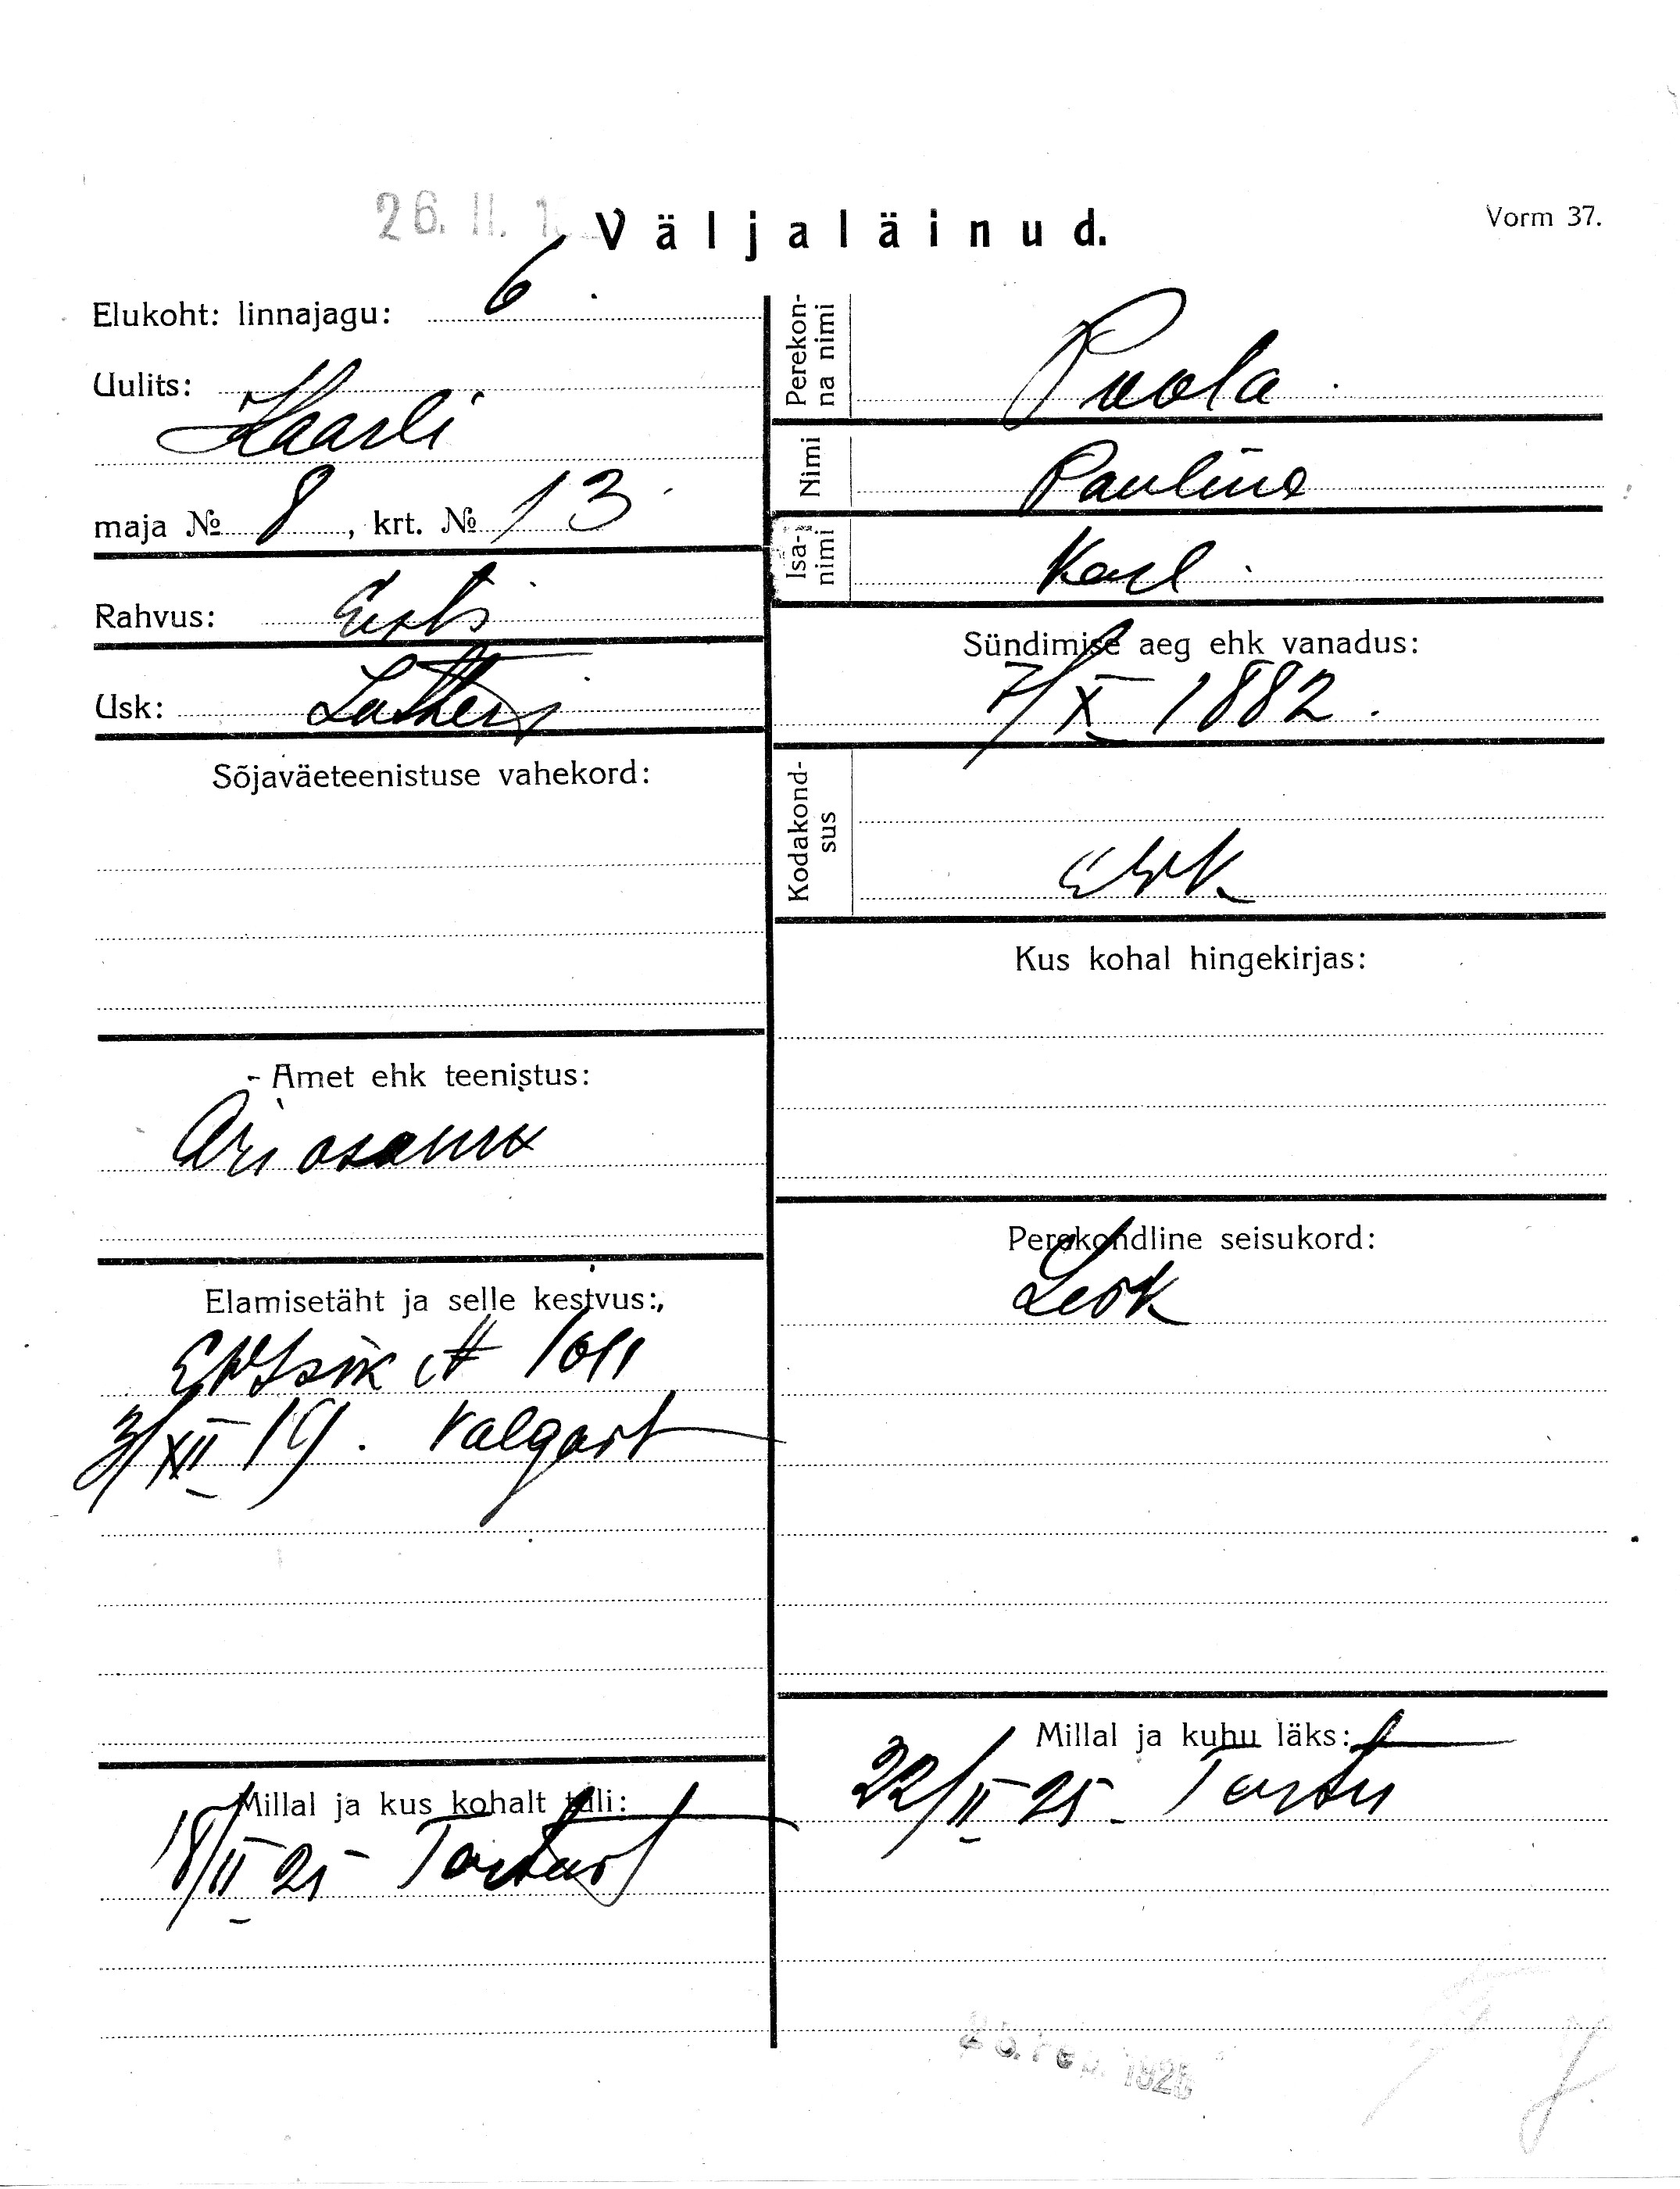 26. II. 1
Väljaläinud.
Vorm 37.
Elukoht: linnajagu: 6
Uulits:
Kaarli
maja № 8, krt. № 13
Rahvus: Eesti
Usk: Lutheri
Sõjaväeteenistuse vahekord:
Amet ehk teenistus:
Äri osanik
Elamisetäht ja selle kestvus:
№ 1011
3/XII 19. Valgast
Millal ja kus kohalt tuli:
18/II 25 Tartust
Perekon-
na nimi
Poola
Nimi
Pauline
Isa-
nimi
Karl
Sündimise aeg ehk vanadus:
7/X 1882.
Kodakond-
sus
Kus kohal hingekirjas:
Perekondline seisukord:
Lesk
Millal ja kuhu läks:
22/II 25 Tartu
1925